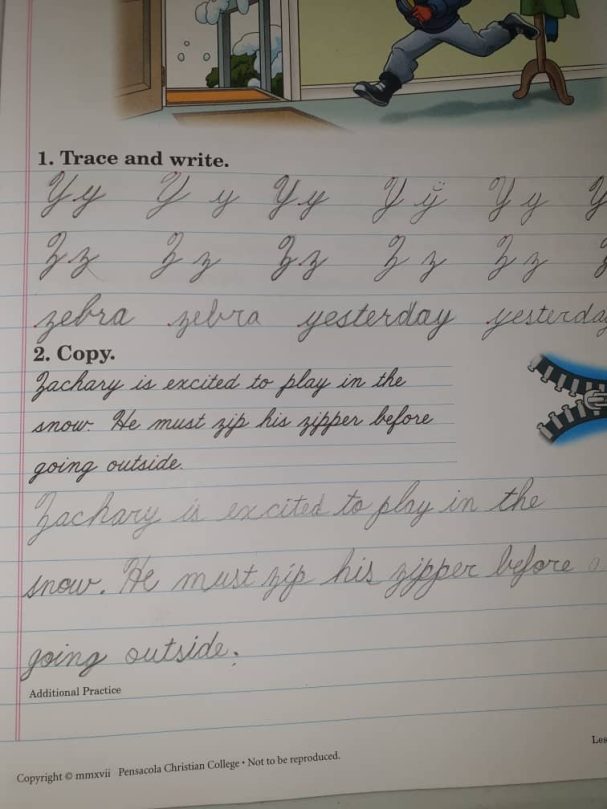 1. Trace and write.
Yy Y y Yy Y y Y y Y
Zz Z z Zz Z z Z z
zebra zebra yesterday yesterda
2. Copy.
Zachary is excited to play in the
snow. He must zip his zipper before
going outside.
Zachary is excited to play in the
snow. He must zip his zipper before
going outside.
Additional Practice
Les
Copyright © mmxvii Pensacola Christian College • Not to be reproduced.